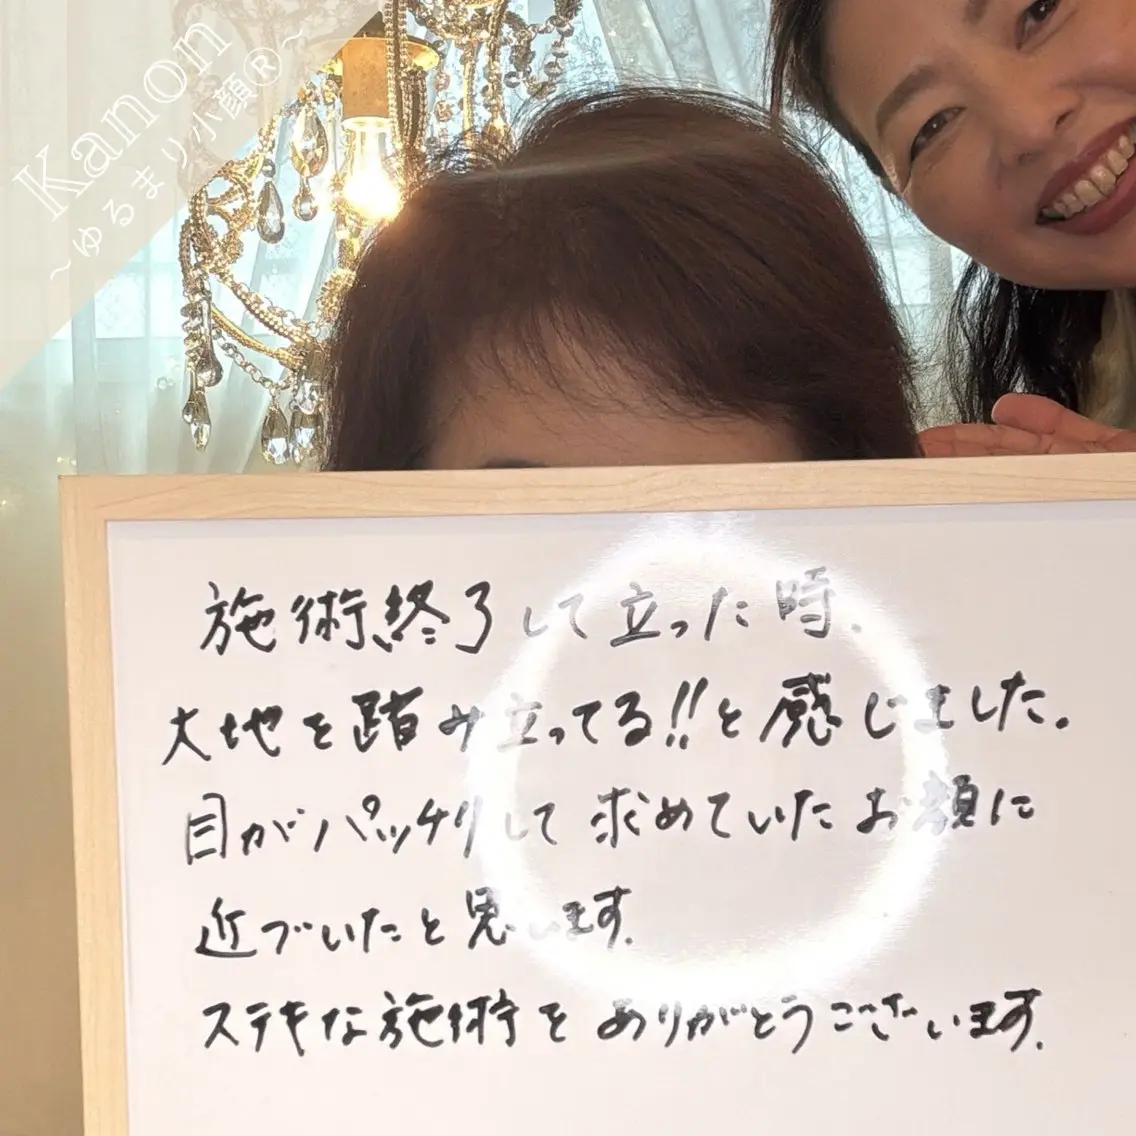 Kanon
~ゆるまり小顔®~
施術終了して立った時、
大地を踏み立ってる!!と感じました。
目がパッチリして求めていたお顔に
近づいたと思います。
ステキな施術をありがとうございます。